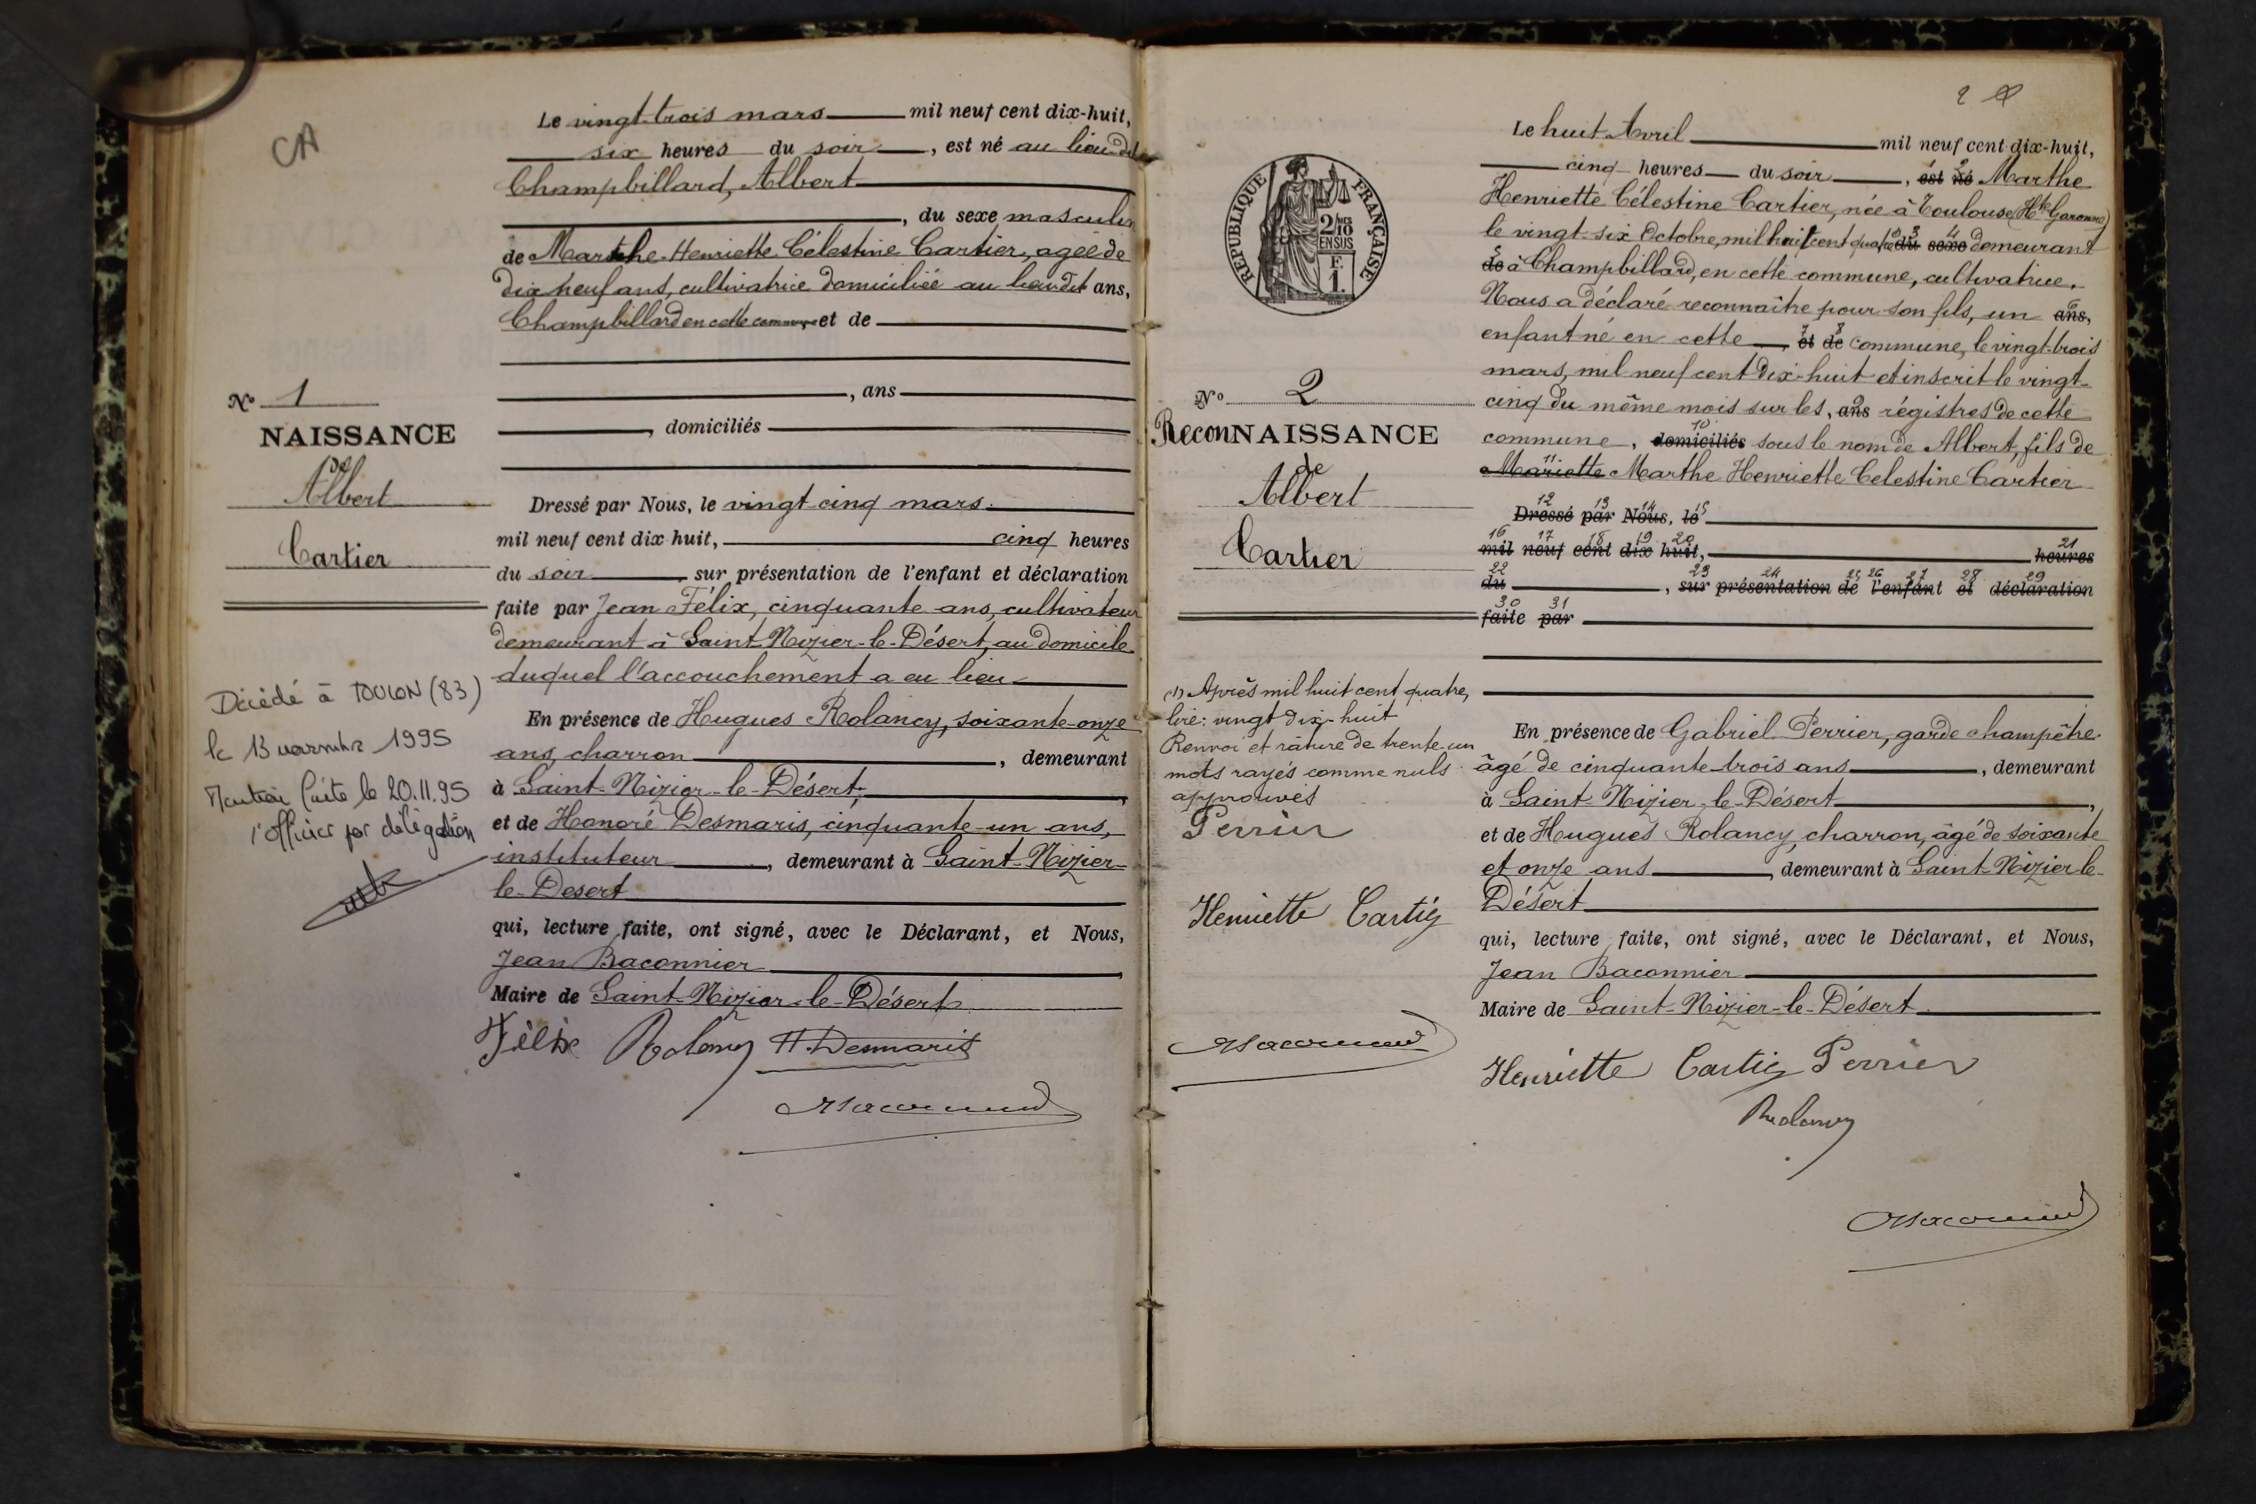 CA
Le vingt-trois mars mil neuf cent dix-huit,
six heures du soir, est né au lieu dit
Champbillard, Albert
, du sexe masculin
de Marthe Henriette Célestine Cartier, agée de
dix neuf ans, cultivatrice domiciliée au lieu dit ans,
Champbillard en cette commune et de
, ans
, domiciliés
No 1
NAISSANCE
de
Albert
Cartier
Dressé par Nous, le vingt cinq mars
mil neuf cent dix huit, cinq heures
du soir, sur présentation de l'enfant et déclaration
faite par Jean Félix, cinquante ans, cultivateur
demeurant à Saint-Nizier-le-Désert, au domicile
duquel l'accouchement a eu lieu
En présence de Hugues Rolancy, soixante-onze
ans, charron, demeurant
à Saint-Nizier-le-Désert,
et de Honoré Desmaris, cinquante-un ans,
instituteur, demeurant à Saint-Nizier-
le-Desert
qui, lecture faite, ont signé, avec le Déclarant, et Nous,
Jean Baconnier
Maire de Saint-Nizier-le-Désert
Félix Rolancy H. Desmaris
Décédé à TOULON (83)
le 13 novembre 1995
Mention faite le 20.11.95
l'officier par délégation
2
Le huit Avril mil neuf cent dix-huit,
cinq heures du soir, est né 2 Marthe
Henriette Célestine Cartier, née à Toulouse (Hte Garonne)
le vingt-six Octobre, mil huit cent quatre (1) du 3 sexe 4 demeurant
de 5 à Champbillard, en cette commune, cultivatrice.
Nous a déclaré reconnaître pour son fils, un ans, 6
enfant né en cette, et 7 de 8 commune, le vingt-trois
mars, mil neuf cent dix-huit et inscrit le vingt-
cinq du même mois sur les, ans 9 régistres de cette
commune, domiciliés 10 sous le nom de Albert, fils de
Mariette 11 Marthe Henriette Celestine Cartier
RÉPUBLIQUE FRANÇAISE
2/10 EN SUS
F. 1.
No 2
ReconNAISSANCE
de
Albert
Cartier
12 13 14 15
Dressé par Nous, le
16 17 18 19 20 21
mil neuf cent dix huit, heures
22 23 24 25 26 27 28 29
du, sur présentation de l'enfant et déclaration
30 31
faite par
(1) Après mil huit cent quatre,
lire: vingt dix-huit
Renvoi et râture de trente-un
mots rayés comme nuls
approuvés
Perrier
Henriette Cartier
En présence de Gabriel Perrier, garde champêtre
âgé de cinquante-trois ans, demeurant
à Saint-Nizier-le-Désert,
et de Hugues Rolancy, charron, âgé de soixante
et onze ans, demeurant à Saint-Nizier le-
Désert
qui, lecture faite, ont signé, avec le Déclarant, et Nous,
Jean Baconnier
Maire de Saint-Nizier-le-Désert
Henriette Cartier Perrier
Rolancy